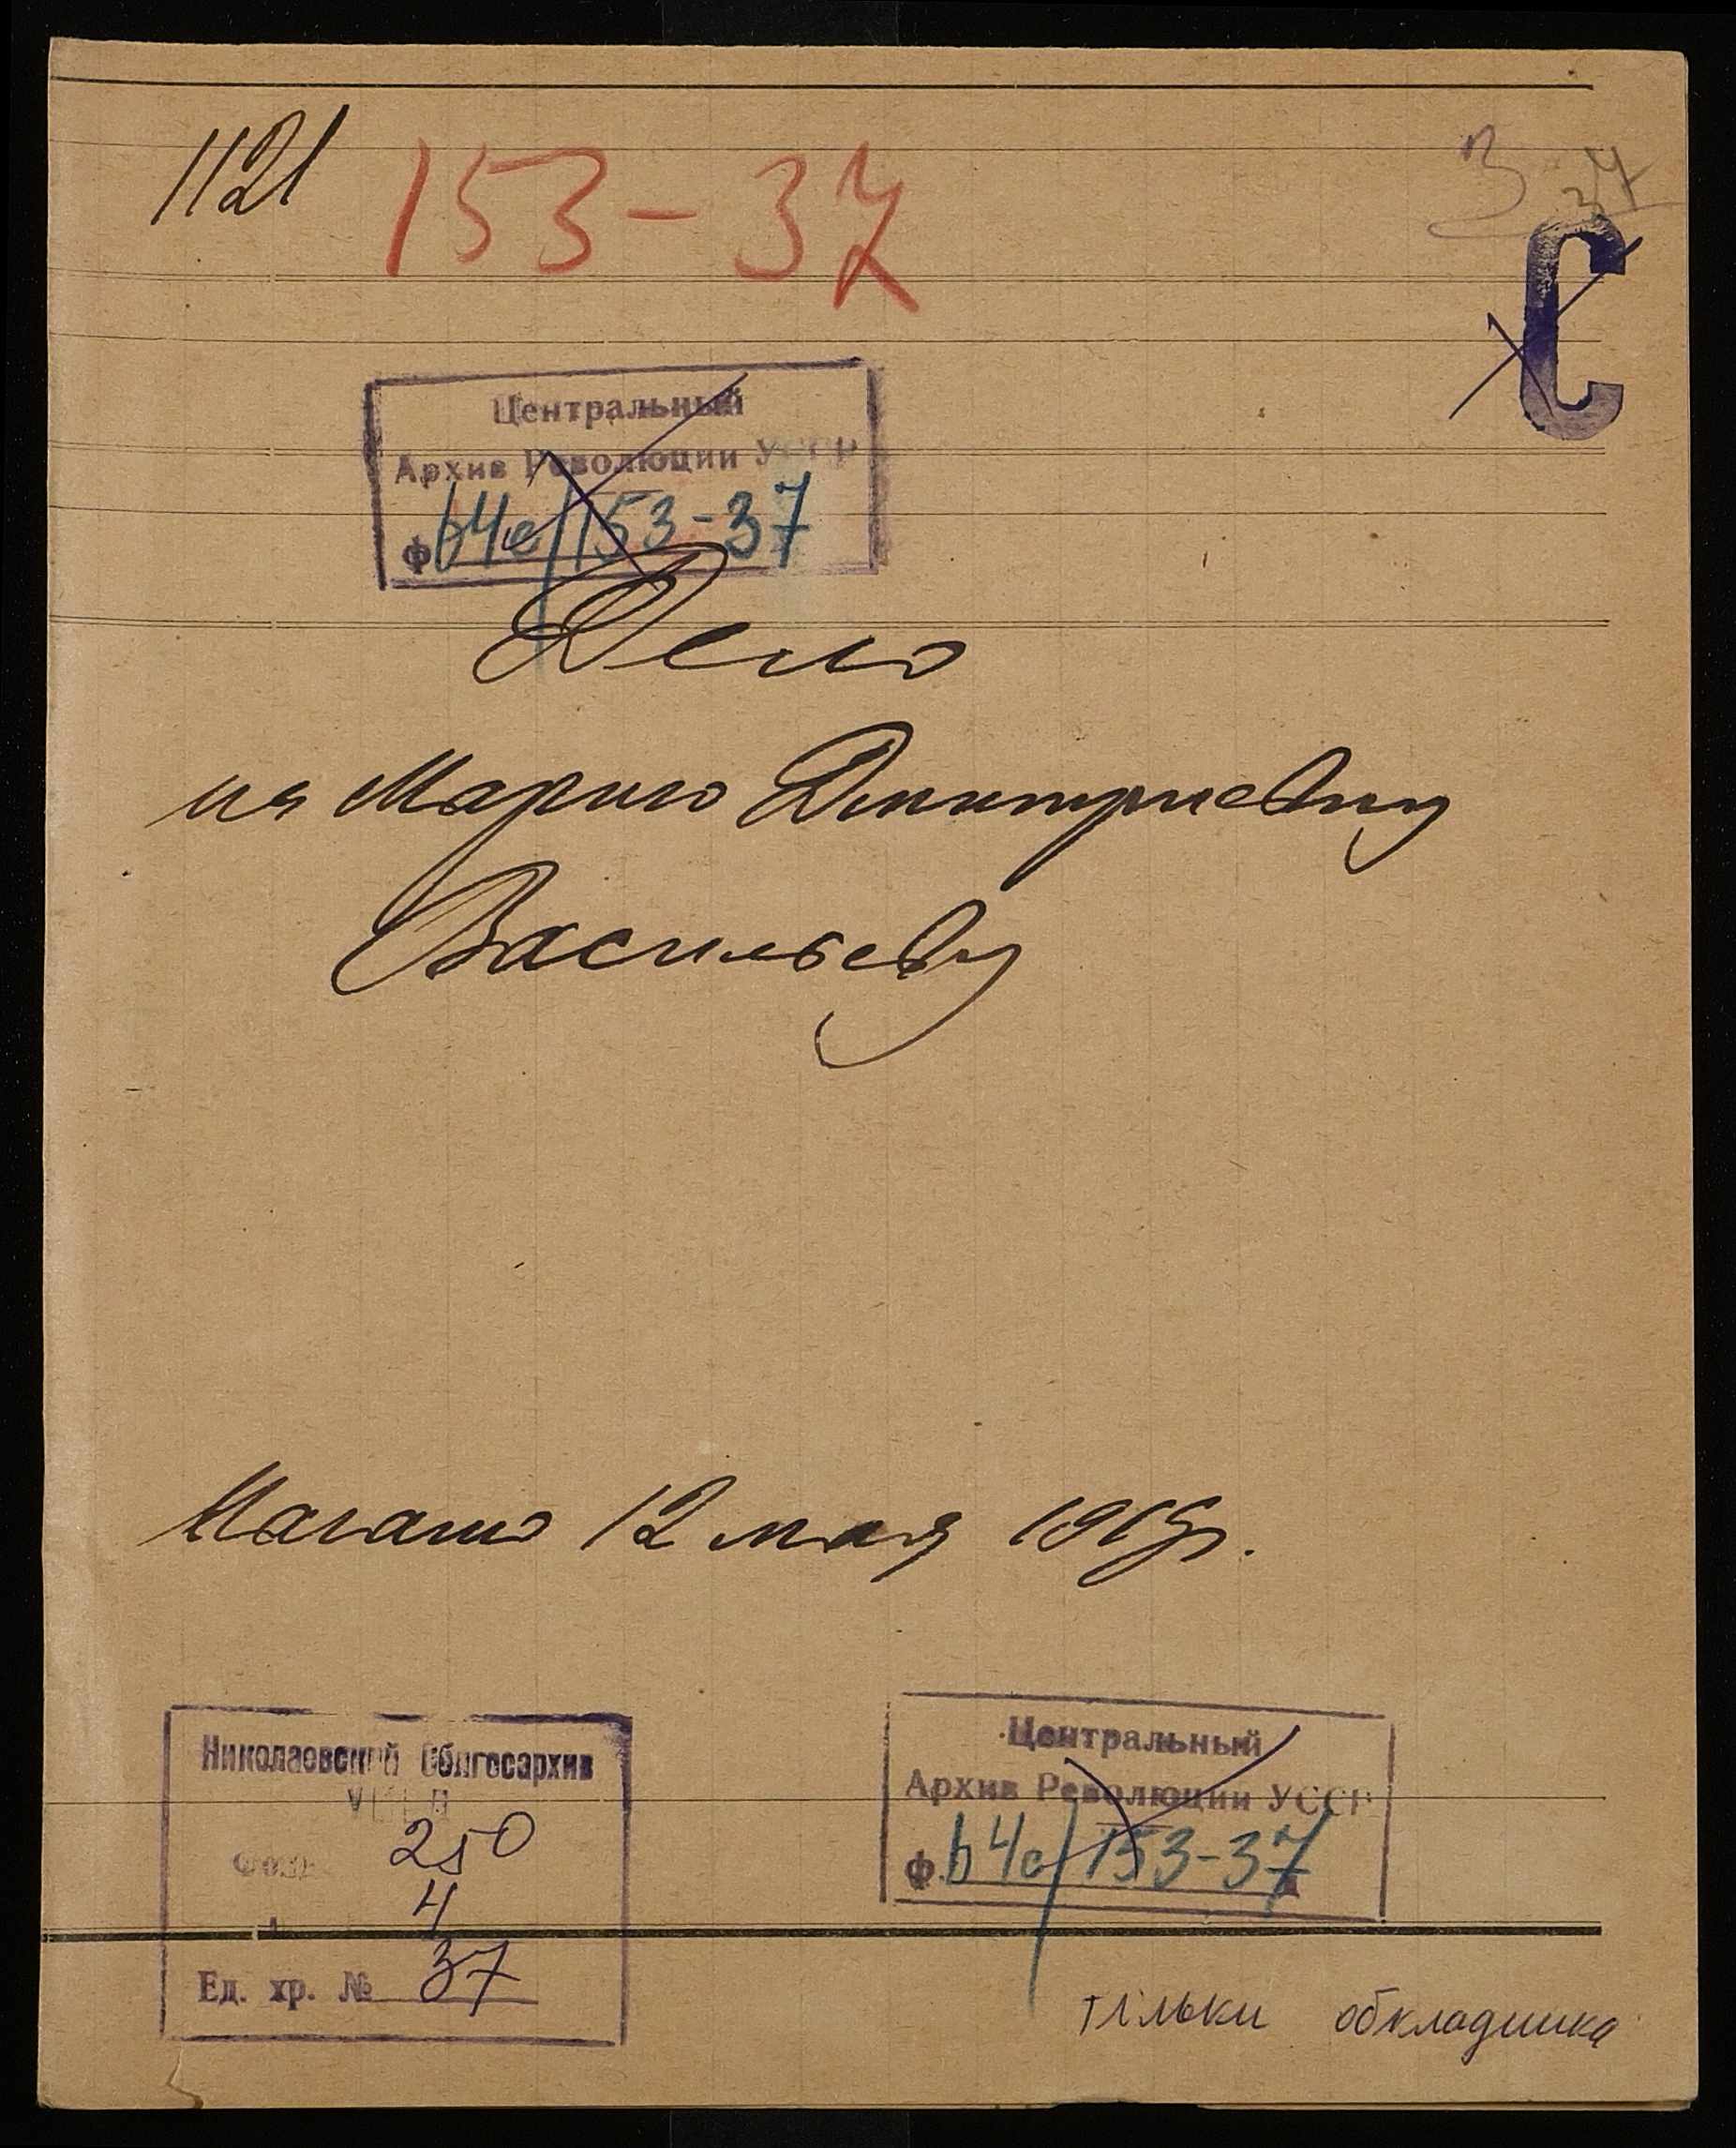 1121
153-37
3 37
С
Центральный
Архив Революции УССР
Ф 64с/153-37
Дело
на Марию Дмитриевну
Васильеву
Начато 12 мая 1919г.
Николаевский Облгосархив
УССР
Фонд 250
4
Ед. хр. № 37
Центральный
Архив Революции УССР
Ф. 64с/153-37
тільки обкладинка